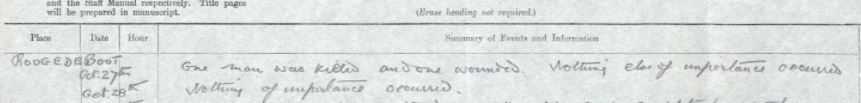 and the Staff Manual respectively. Title pages
will be prepared in manuscript.
(Erase heading not required.)
Place Date Hour Summary of Events and Information
ROOGEDEBOOT
Oct. 27th One man was killed and one wounded. Nothing else of importance occurred
Oct. 28th Nothing of importance occurred.